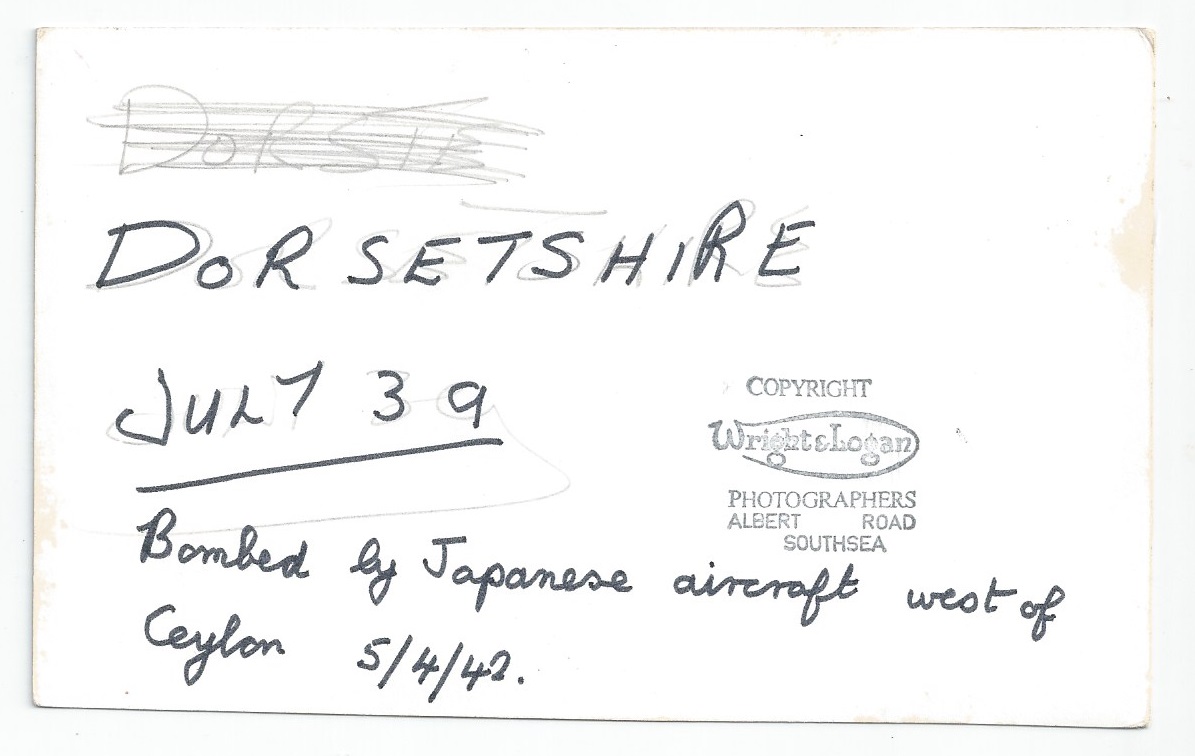 DORSETSHIRE
JULY 39
COPYRIGHT
Wright & Logan
PHOTOGRAPHERS
ALBERT ROAD
SOUTHSEA
Bombed by Japanese aircraft west of
Ceylon 5/4/42.